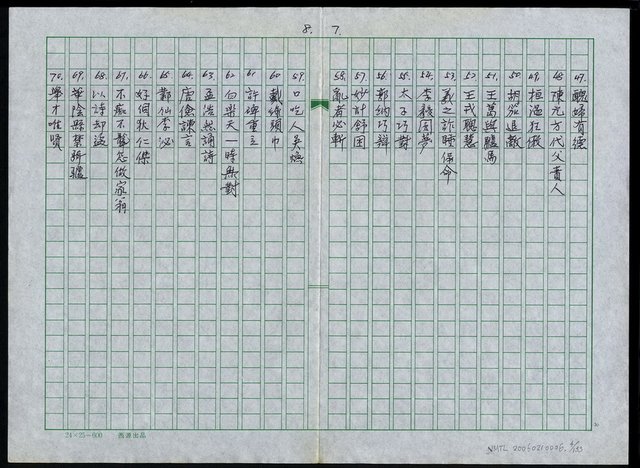 8. 7.
47. 醜婦有德
48. 陳元方代父責人
49. 桓溫狂傲
50. 胡笳退敵
51. 王葛與驢馬
52. 王戎聰慧
53. 羲之詐睡保命
54. 李毅圓夢
55. 太子巧對
56. 郭納巧辯
57. 妙計舒困
58. 亂者必斬
59. 口吃人吳煥
60. 戴綠頭巾
61. 許碑重立
62. 白樂天一時無對
63. 孟浩然誦詩
64. 唐儉諫言
65. 鄴仙李泌
66. 好個狄仁傑
67. 不癡不聾怎做家翁
68. 以詩却盜
69. 華陰縣禁騎驢
70. 舉才唯賢
24×25=600 西源出品
NMTL 20050210006